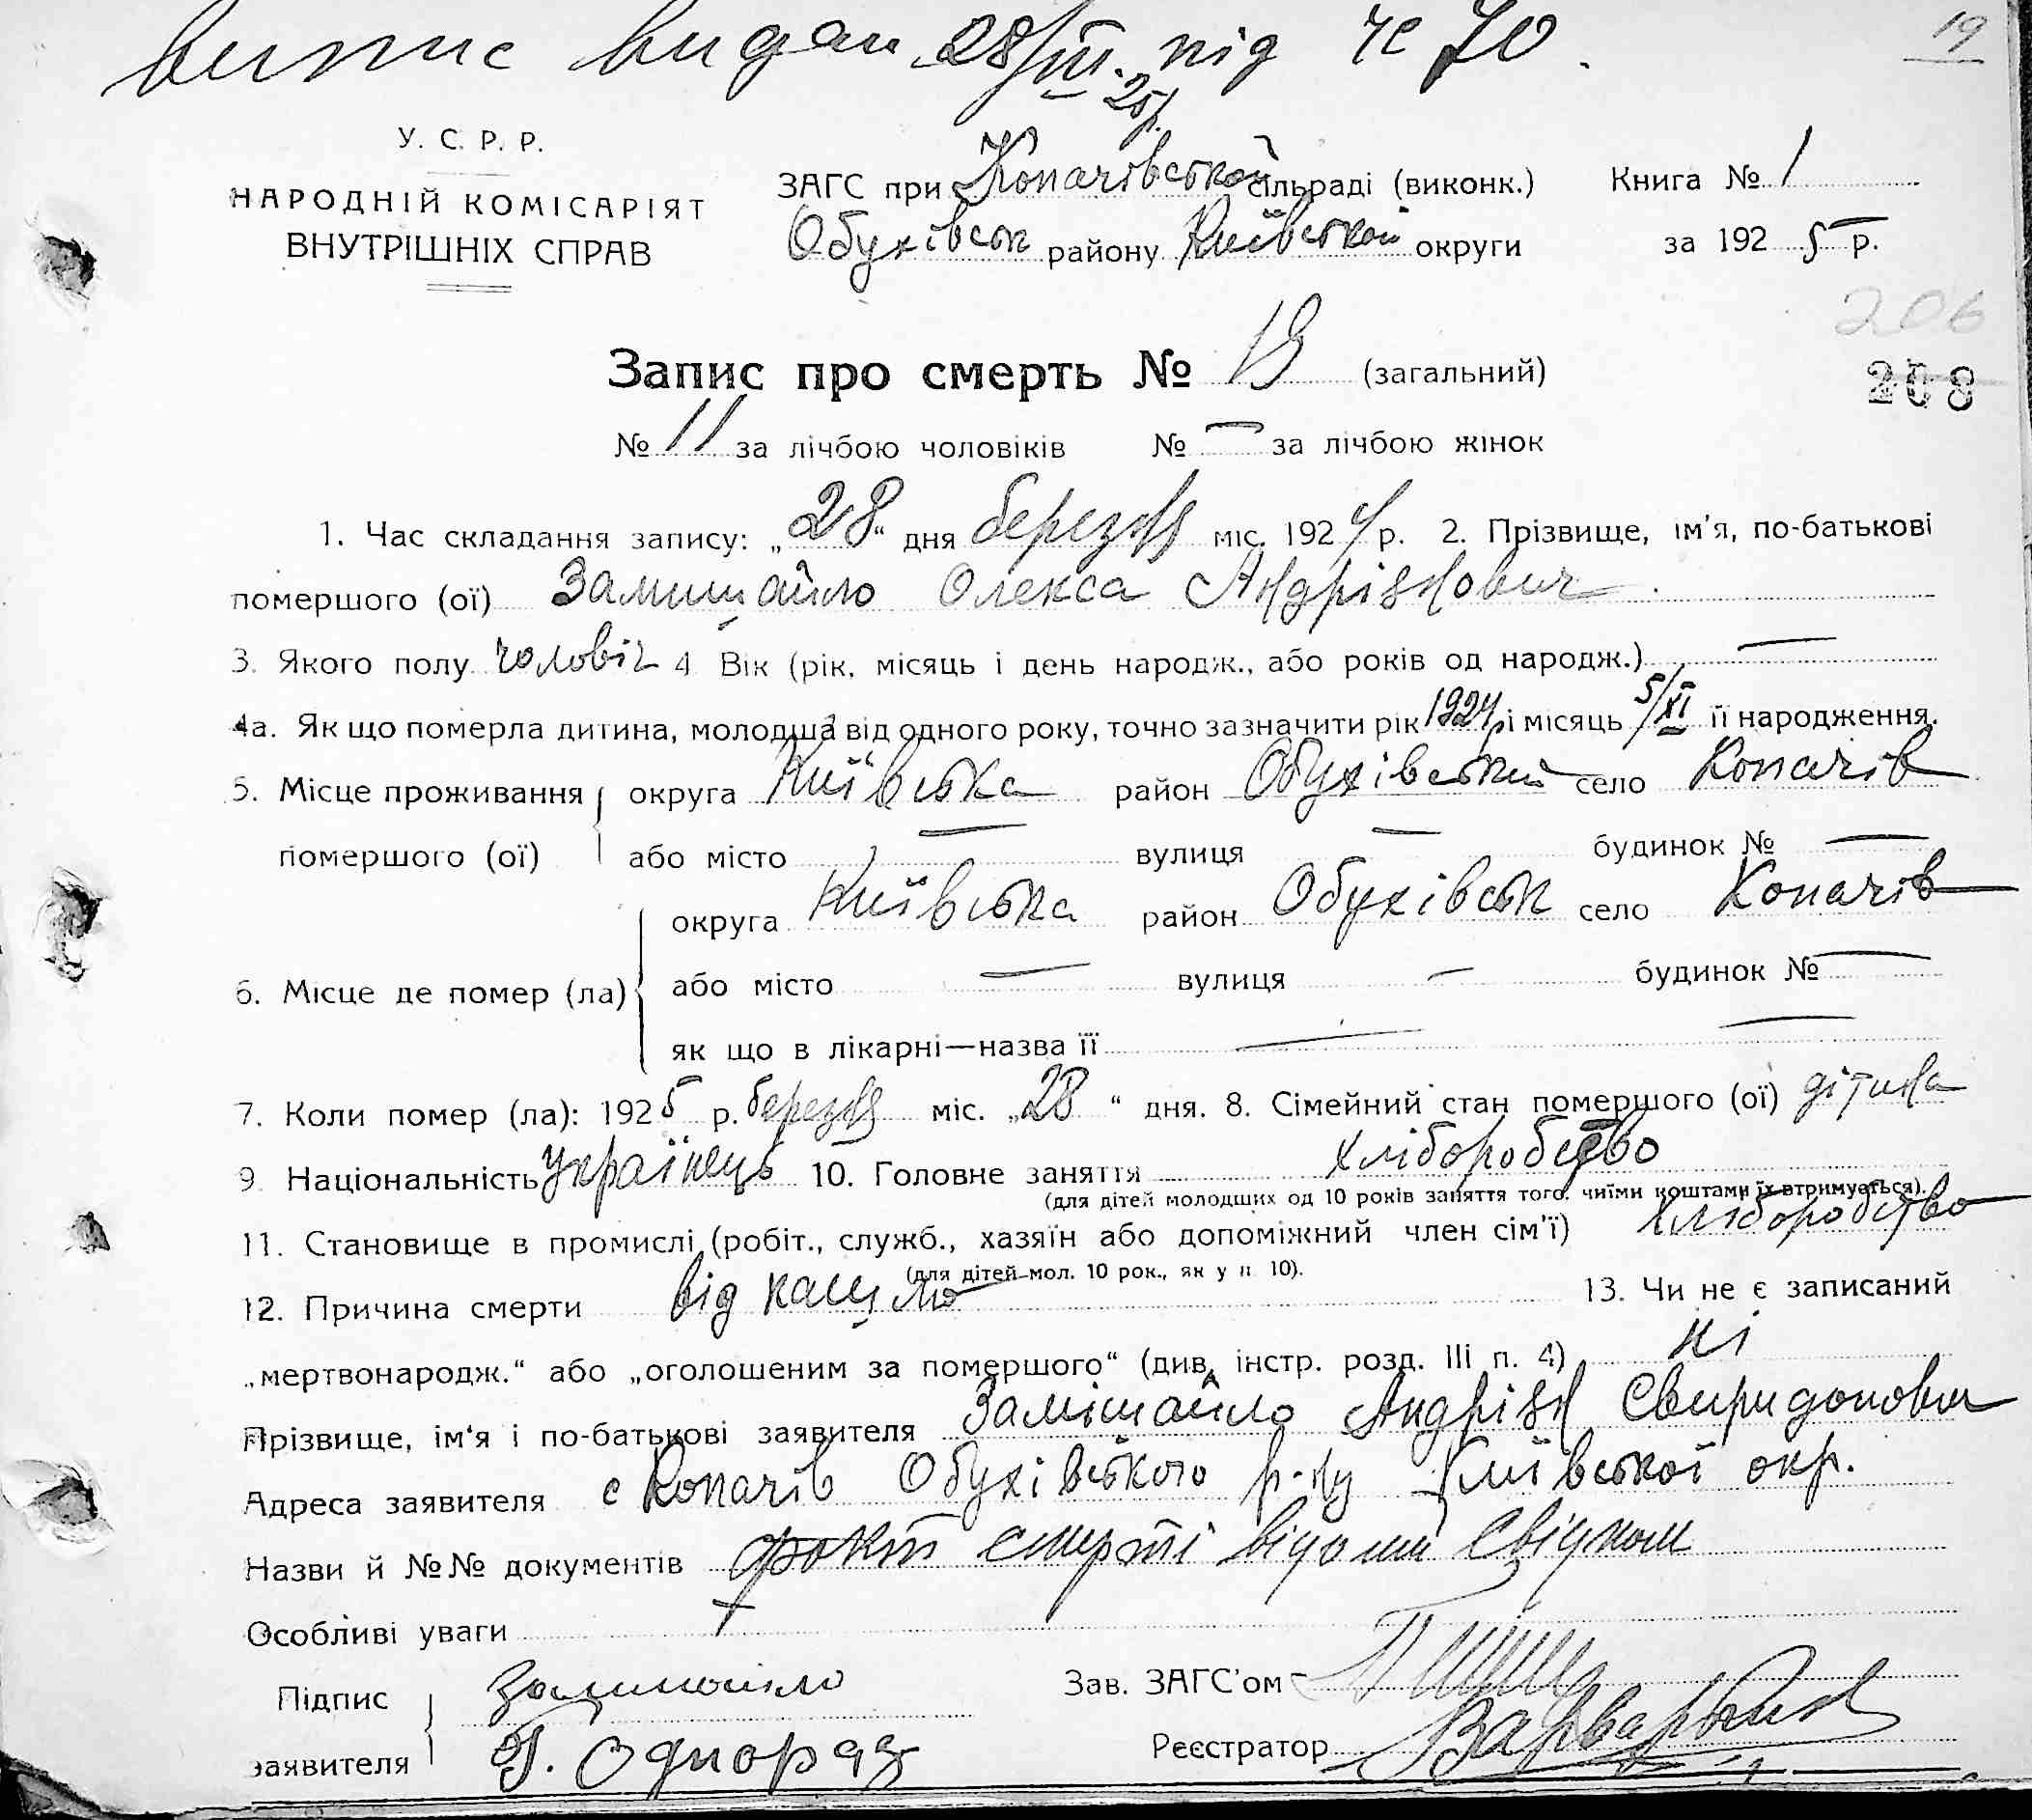 випис видан 28/III. під № 70.
25р.
19
У. С. Р. Р.
НАРОДНІЙ КОМІСАРІЯТ
ВНУТРІШНІХ СПРАВ
ЗАГС при Копачівській сільраді (виконк.)
Обухівськ району Київської округи
Книга № 1
за 192 5 р.
206
208
Запис про смерть № 19 (загальний)
№ 11 за лічбою чоловіків № — за лічбою жінок
1. Час складання запису: „28“ дня березня міс. 1924 р. 2. Прізвище, ім'я, по-батькові
помершого (ої) Замишайло Олекса Андріянович
3. Якого полу чоловіч 4 Вік (рік, місяць і день народж., або років од народж.) —
4а. Як що померла дитина, молодша від одного року, точно зазначити рік 1924 і місяць 5/XI її народження.
5. Місце проживання помершого (ої) округа Київська район Обухівський село Копачів
або місто — вулиця — будинок № —
6. Місце де помер (ла) округа Київська район Обухівськ село Копачів
або місто — вулиця — будинок № —
як що в лікарні—назва її — —
7. Коли помер (ла): 1925 р. березня міс. „28“ дня. 8. Сімейний стан помершого (ої) дітина
9. Національність Українець 10. Головне заняття хліборобство
(для дітей молодших од 10 років заняття того, чиїми коштами їх втримується).
11. Становище в промислі (робіт., служб., хазяїн або допоміжний член сім'ї) хліборобство
(для дітей мол. 10 рок., як у п 10).
12. Причина смерти від кашлю 13. Чи не є записаний
„мертвонародж.“ або „оголошеним за помершого“ (див. інстр. розд. III п. 4) ні
Прізвище, ім'я і по-батькові заявителя Замішайло Андріян Свиридонович
Адреса заявителя с Копачів Обухівського р-ну Київської окр.
Назви й №№ документів факт смерті відомий свідком
Особливі уваги
Підпис заявителя Замишайло
Г. Однораз
Зав. ЗАГС'ом
Реєстратор